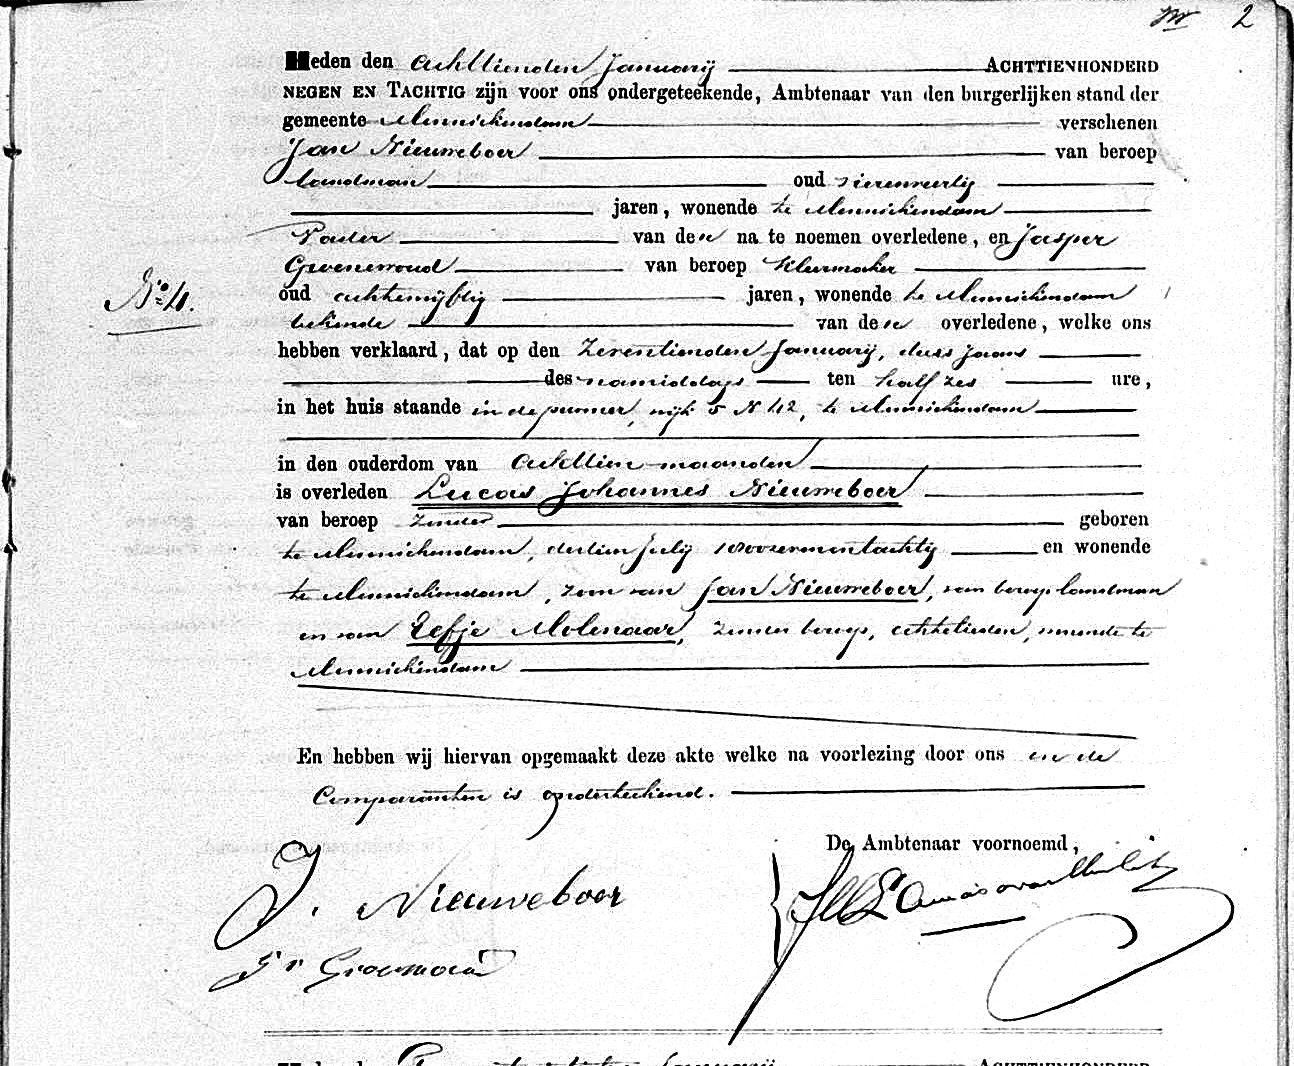 2
Heden den achttienden Januarij ACHTTIENHONDERD
NEGEN EN TACHTIG zijn voor ons ondergeteekende, Ambtenaar van den burgerlijken stand der
gemeente Monnickendam verschenen
Jan Nieuweboer van beroep
landman oud vierenveertig
jaren, wonende te Monnickendam
Vader van den na te noemen overledene, en Jasper
Groenewoud van beroep kleermaker
oud achtenvijftig jaren, wonende te Monnickendam
No 4.
bekende van den overledene, welke ons
hebben verklaard, dat op den Zeventienden Januarij, dezes jaars
des namiddags ten half zes ure,
in het huis staande in de purmer, wijk 5 N 42, te Monnickendam
in den ouderdom van achttien maanden
is overleden Lucas Johannes Nieuweboer
van beroep zonder geboren
te Monnickendam, dertien Julij 1800zevenentachtig en wonende
te Monnickendam, zoon van Jan Nieuweboer, van beroep landman
en van Eefje Molenaar, zonder beroep, echtelieden, wonende te
Monnickendam
En hebben wij hiervan opgemaakt deze akte welke na voorlezing door ons en de
Comparanten is onderteekend.
De Ambtenaar voornoemd,
J. Nieuweboer
ACHTTIENHONDERD